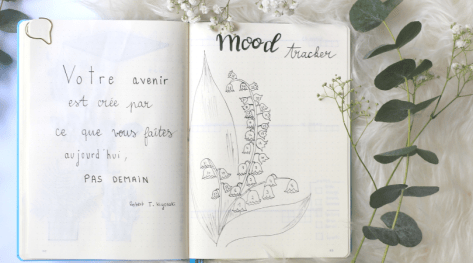 Votre avenir
est crée par
ce que vous faites
aujourd'hui,
PAS DEMAIN
Robert T. Kiyosaki
Mood
tracker